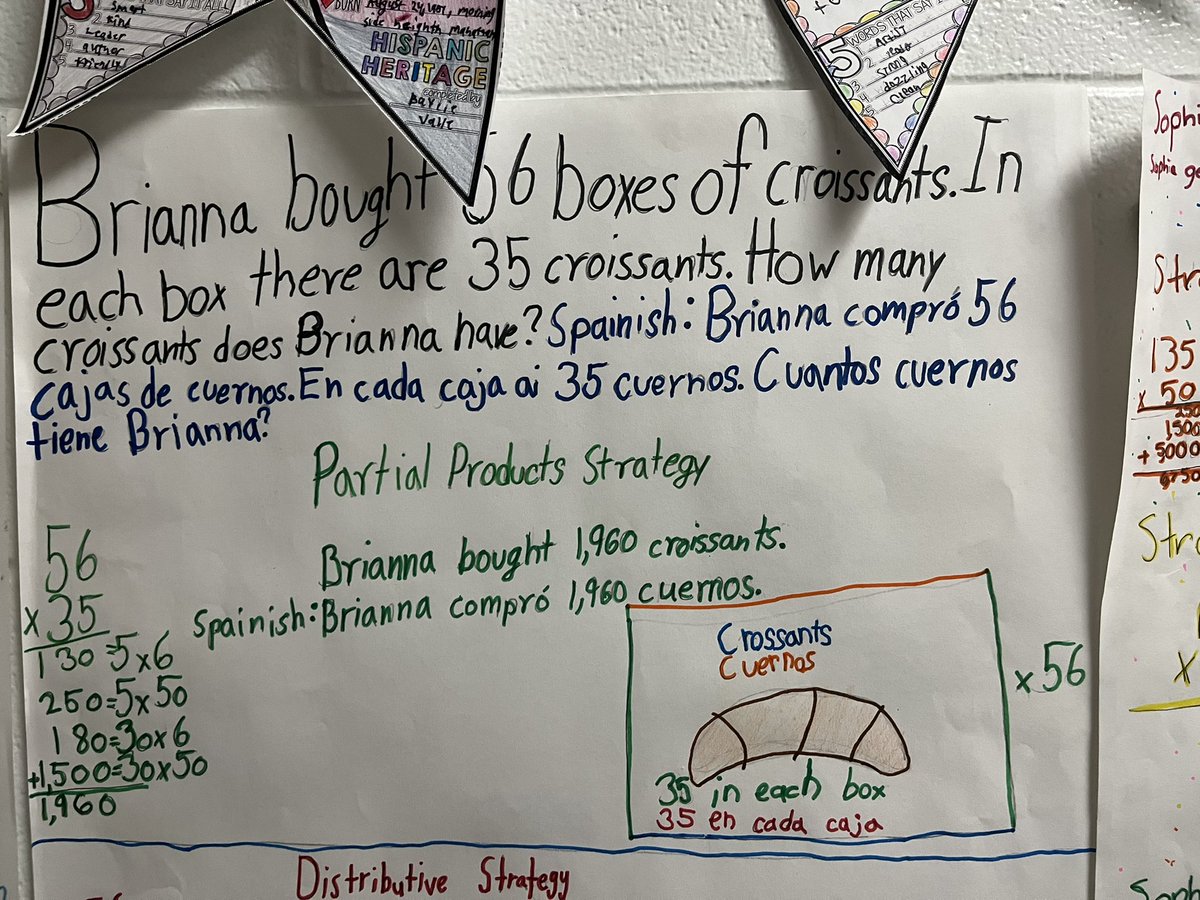 Smart
2 Kind
3 Leader
4 author
BORN August 24, morning
side heights
HISPANIC
HERITAGE
completed by
Valle
5 WORDS THAT SAY IT
Artist
2
3 Strong
4 dazzling
5 Clean
Brianna bought 56 boxes of croissants. In
each box there are 35 croissants. How many
croissants does Brianna have? Spainish: Brianna compró 56
cajas de cuernos. En cada caja ai 35 cuernos. Cuantos cuernos
tiene Brianna?
Partial Products Strategy
Brianna bought 1,960 croissants.
Spainish: Brianna compró 1,960 cuernos.
56
x 35
130=5x6
250=5x50
180=30x6
+1,500=30x50
1,960
Crossants
Cuernos
35 in each box
35 en cada caja
x 56
Distributive Strategy
Sophi
Sophia ge
Stra
135
x 50
250
1500
+5000
6750
Stra
x
Soph